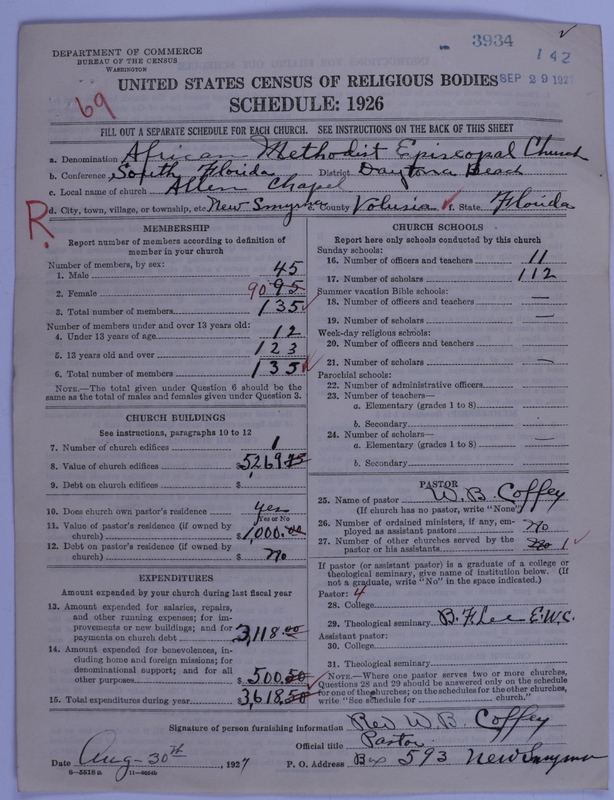 3934
142
DEPARTMENT OF COMMERCE
BUREAU OF THE CENSUS
WASHINGTON
SEP 29 192
UNITED STATES CENSUS OF RELIGIOUS BODIES
SCHEDULE: 1926
69
FILL OUT A SEPARATE SCHEDULE FOR EACH CHURCH. SEE INSTRUCTIONS ON THE BACK OF THIS SHEET
a. Denomination African Methodist Episcopal Church
b. Conference South Florida District Daytona Beach
c. Local name of church Allen Chapel
R. d. City, town, village, or township, etc. New Smyrna e. County Volusia f. State Florida
MEMBERSHIP
Report number of members according to definition of
member in your church
Number of members, by sex:
1. Male 45
2. Female 90 95
3. Total number of members 135
Number of members under and over 13 years old:
4. Under 13 years of age 12
5. 13 years old and over 123
6. Total number of members 135
NOTE.—The total given under Question 6 should be
same as the total of males and females given under Question 3.
CHURCH BUILDINGS
See instructions, paragraphs 10 to 12
7. Number of church edifices 1
8. Value of church edifices $5269.75
9. Debt on church edifices $
10. Does church own pastor's residence yes
Yes or No
11. Value of pastor's residence (if owned by
church) $1000.00
12. Debt on pastor's residence (if owned by
church) $ no
EXPENDITURES
Amount expended by your church during last fiscal year
13. Amount expended for salaries, repairs,
and other running expenses; for im-
provements or new buildings; and for
payments on church debt $3,118.00
14. Amount expended for benevolences, in-
cluding home and foreign missions; for
denominational support; and for all
other purposes $500.50
15. Total expenditures during year $3,618.50
CHURCH SCHOOLS
Report here only schools conducted by this church
Sunday schools:
16. Number of officers and teachers 11
17. Number of scholars 112
Summer vacation Bible schools:
18. Number of officers and teachers —
19. Number of scholars —
Week-day religious schools:
20. Number of officers and teachers
21. Number of scholars —
Parochial schools:
22. Number of administrative officers
23. Number of teachers—
a. Elementary (grades 1 to 8)
b. Secondary
24. Number of scholars—
a. Elementary (grades 1 to 8) —
b. Secondary
PASTOR
25. Name of pastor W. B. Coffey
(If church has no pastor, write "None")
26. Number of ordained ministers, if any, em-
ployed as assistant pastors no
27. Number of other churches served by the
pastor or his assistants no 1
If pastor (or assistant pastor) is a graduate of a college or
theological seminary, give name of institution below. (If
not a graduate, write "No" in the space indicated.)
Pastor: 4
28. College
29. Theological seminary B. F. Lee E.W.C.
Assistant pastor:
30. College
31. Theological seminary
NOTE.—Where one pastor serves two or more churches,
Questions 28 and 29 should be answered only on the schedule
for one of the churches; on the schedules for the other churches,
write "See schedule for church."
Signature of person furnishing information Rev W B Coffey
Official title Pastor
Date Aug-30th, 1927 P. O. Address Box 593 New Smyrna
8-5518a 11-9024b